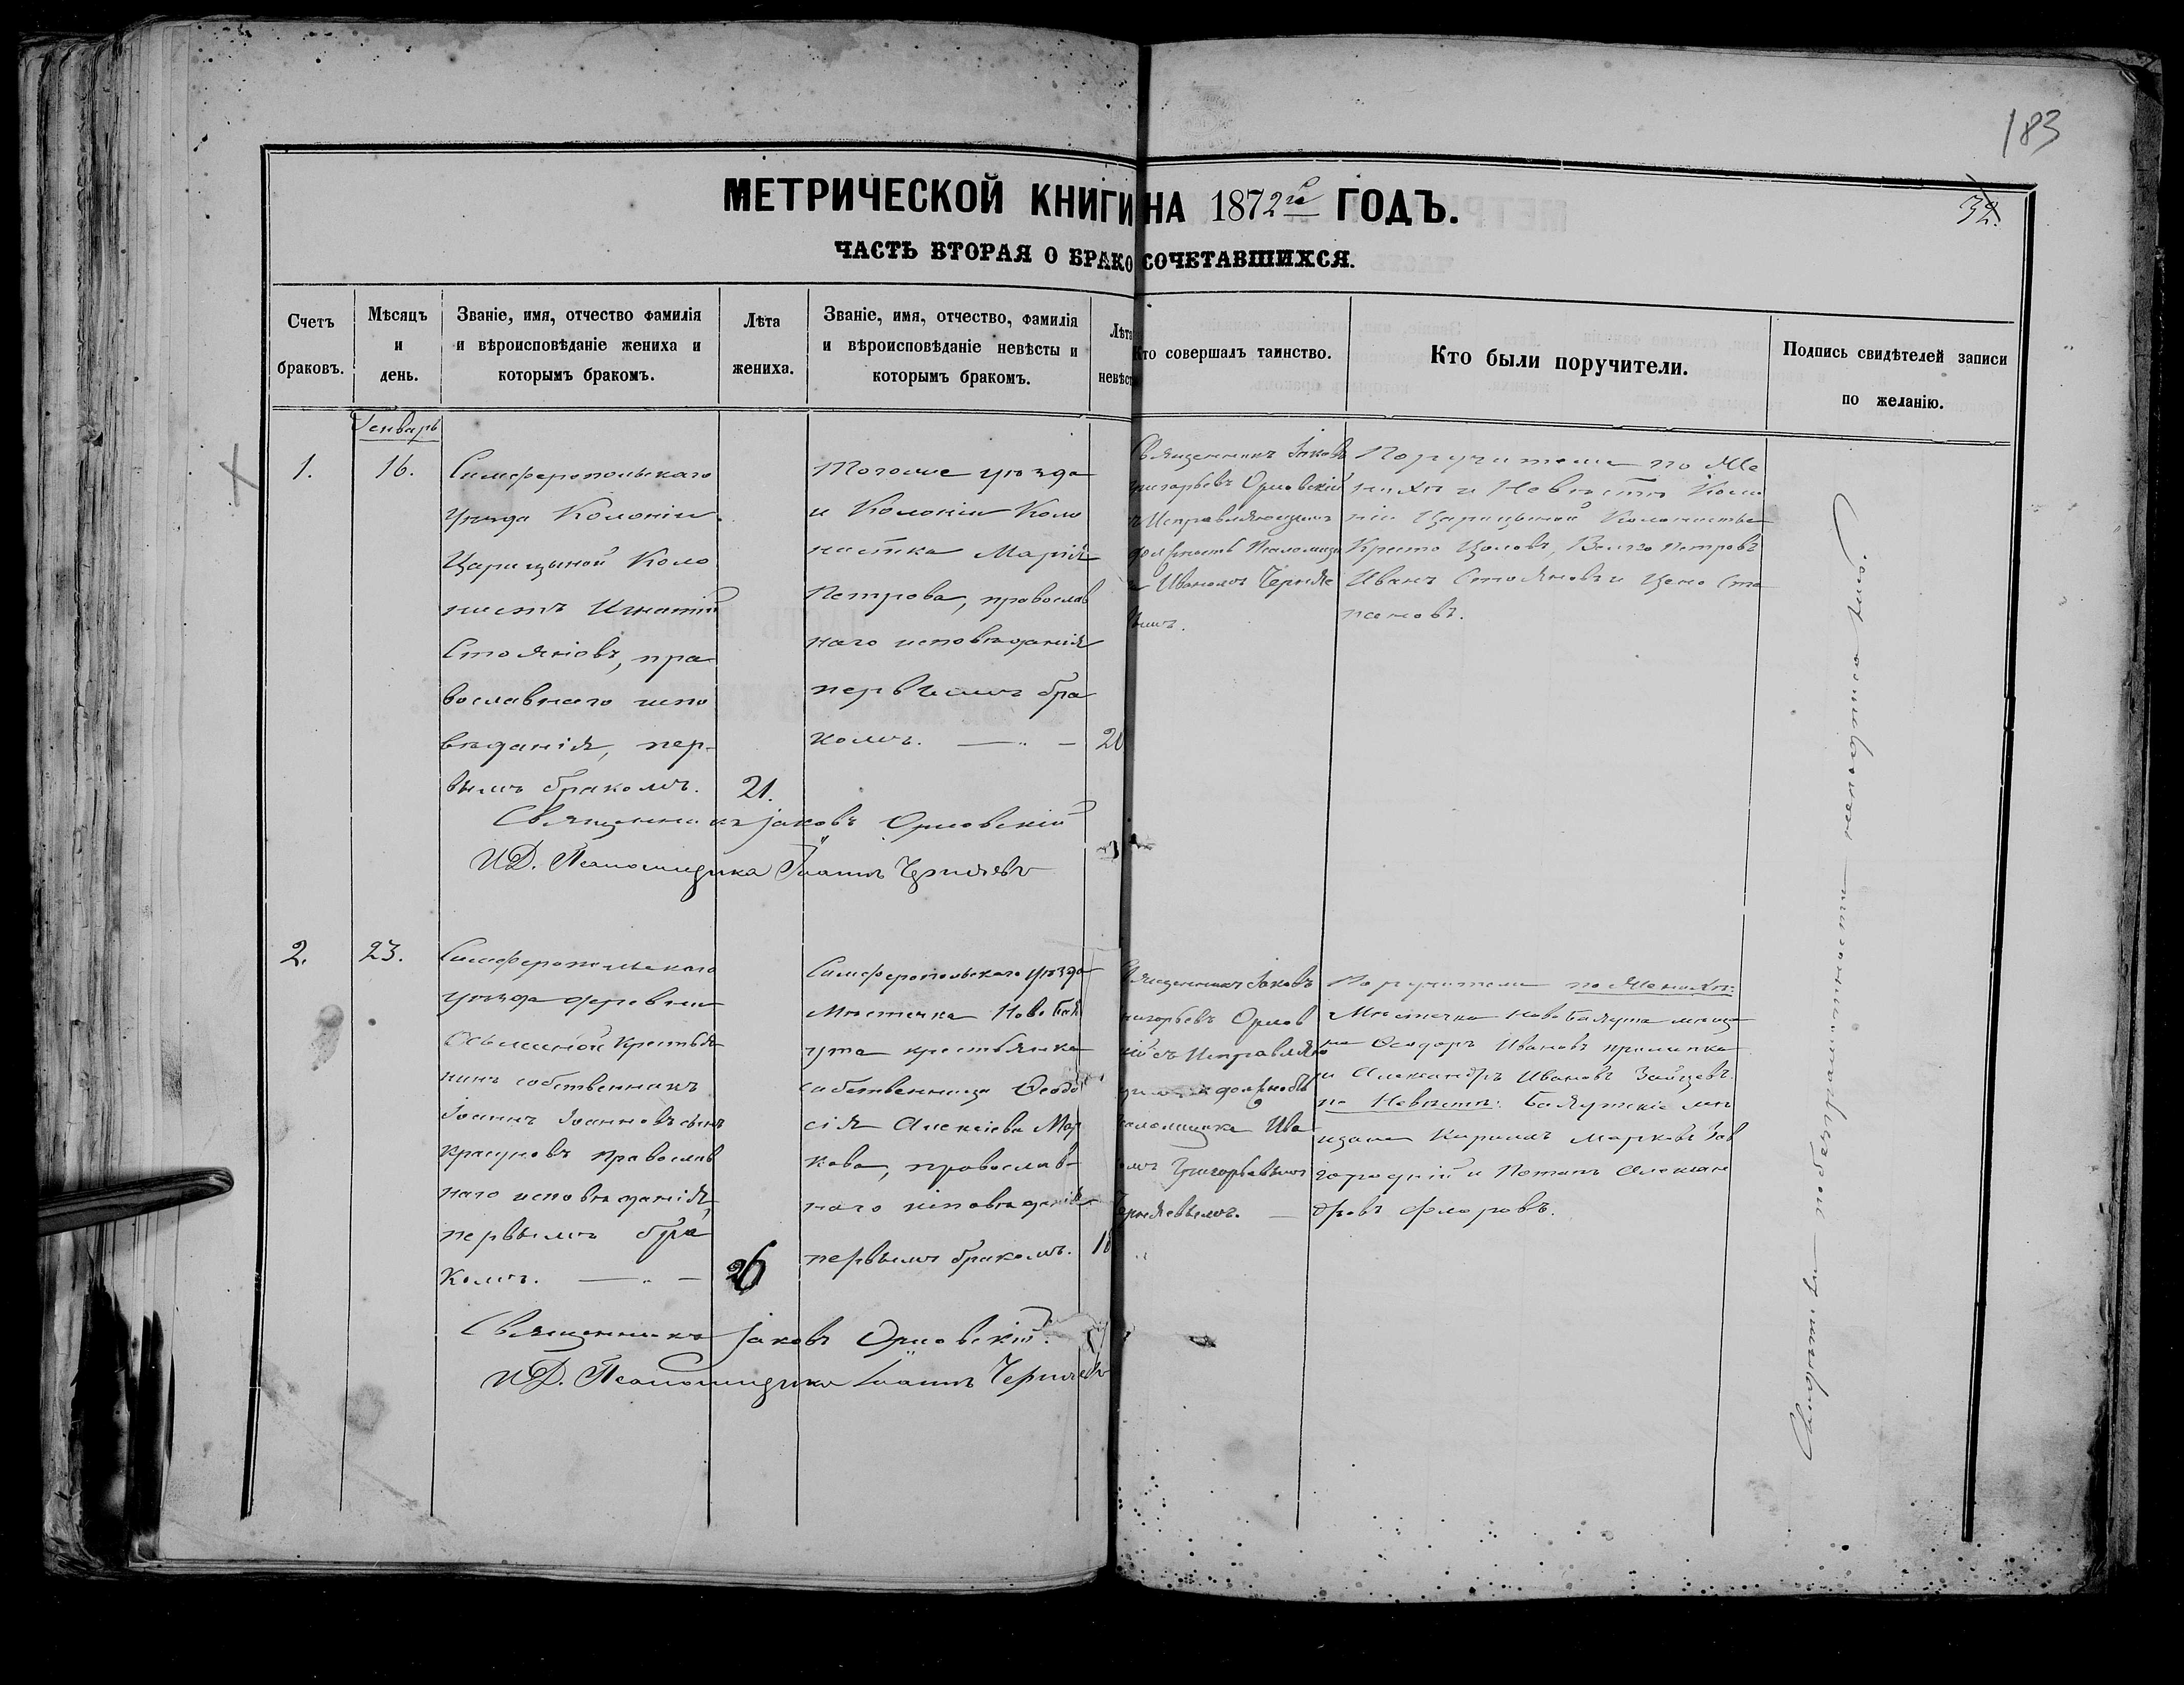 183
32.
МЕТРИЧЕСКОЙ КНИГИ НА 1872го ГОДЪ.
ЧАСТЬ ВТОРАЯ О БРАКОСОЧЕТАВШИХСЯ.
Счетъ браковъ.
Мѣсяцъ и день.
Званіе, имя, отчество фамилія
и вѣроисповѣданіе жениха и
которымъ бракомъ.
Лѣта жениха.
Званіе, имя, отчество, фамилія
и вѣроисповѣданіе невѣсты и
которымъ бракомъ.
Лѣта невѣст
Кто совершалъ таинство.
Кто были поручители.
Подпись свидѣтелей записи
по желанію.
Генварь
1.
16.
Симферопольскаго
уѣзда Колоніи
Царицыной Коло
нистъ Игнатій
Стояновъ, пра
вославнаго испо
вѣданія, пер-
вымъ бракомъ.
21.
Тогоже уѣзда
и Колоніи Коло
нистка Марія
Петрова, православ
наго исповѣданія
первымъ бра
комъ.
20
Священникъ Іаковъ
Григорьевъ Орловскій
съ Исправляющимъ
должность Псаломщи
Иваномъ Черняе
вымъ.
Поручители по Же
нихѣ и Невѣстѣ Коло
ніи Царицыной Колонисты
Кресто Цоловъ, Велико Петровъ
Иванъ Стояновъ и Цено Сто
яновъ.
Священникъ Іаковъ Орловскій
И.Д. Псаломщика Іоаннъ Черняевъ
2.
23.
Симферопольскаго
уѣзда деревни
Осьминой Крестья
нинъ собственникъ
Іоаннъ Іоанновъ сынъ
Красуновъ Православ
наго исповѣданія,
первымъ бра
комъ.
26
Симферопольскаго уѣзда
Мѣстечка Ново Бая
ута крестьянка
собственница Ѳеодо
сія Алексіева Мар
кова, православ-
наго исповѣданія
первымъ бракомъ.
18
Священникъ Іаковъ
Григорьевъ Орлов
скій съ Исправляю
щимъ должность
Псаломщика Ива
номъ Григорьевымъ
Черняевымъ.
Поручители по Женихѣ:
Мѣстечка Ново Баяута мѣща
не Ѳеодоръ Ивановъ
и Александръ Ивановъ Зайцевъ.
по Невѣстѣ: Баяутскіе мѣ
щане Кириллъ Марковъ Зав
городній и Потапъ Алексан
дровъ Флоровъ.
Священникъ Іаковъ Орловскій
И.Д. Псаломщика Іоаннъ Черняевъ
Свидѣтели по безграмотности неподписались.